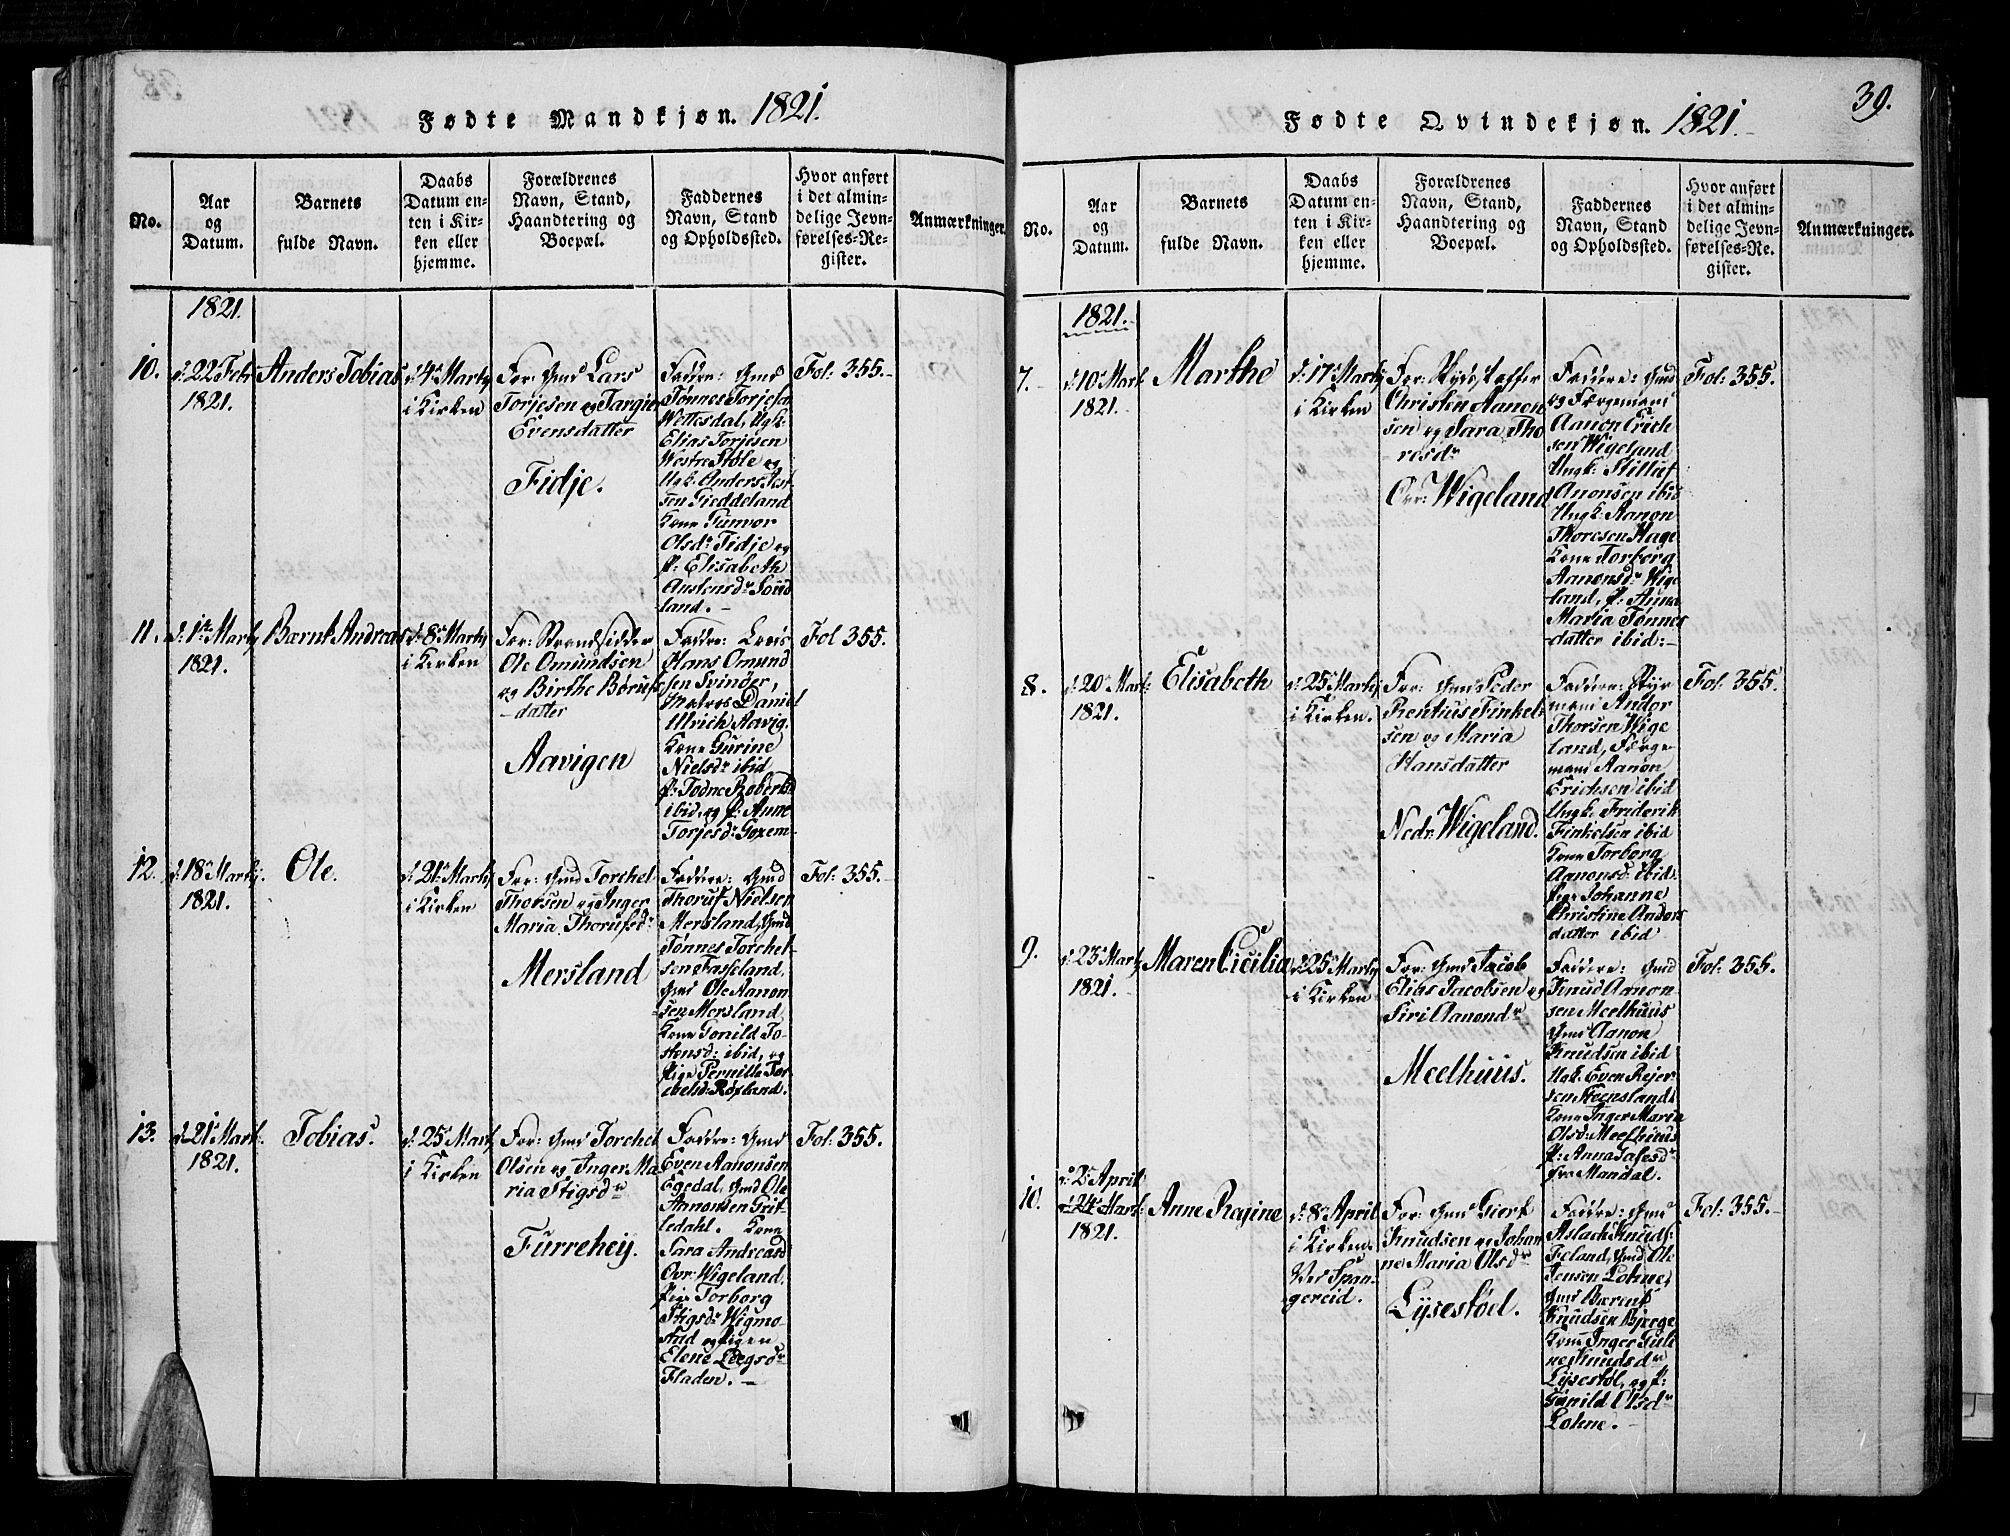 Fødte Mandkjøn. 1821.
No.
Aar
og
Datum.
Barnets
fulde Navn.
Daabs
Datum en-
ten i Kir-
ken eller
hjemme.
Forældrenes
Navn, Stand,
Haandtering og
Boepæl.
Faddernes
Navn, Stand
og Opholdssted.
Hvor anført
i det almin-
delige Jevn-
førelses-Re-
gister.
Anmærkninger.
1821.
10.
d: 22 Febr
1821.
Anders Tobias
d: 4de Marty
i Kirken
For: Gmd Lars
Torjesen og Targie
Evensdatter
Fidje.
Faddre: Gmd
Tønnes Torjesen
Wettesdal, Ugk:
Elias Torjesen
Westre Støle og
Ugk: Anders
sen Gieddeland
Kone Gunvor
Olsdr Fidje og
P: Elisabeth
Austensdr
land.
Fol: 355.
11.
d: 1te Marty
1821.
Bærnt Andreas
d: 8de Marty
i Kirken
For: Strandsidder
Ole Omundsen
og Birthe Børufs
datter
Aavigen
Faddre: Lods
Hans Omund
sen Svinøer,
Matros Daniel
Ulrich Aavig.
Kone Gurine
Nielsdr ibid
P: Todne Robertsd
ibid, og P: Anne
Torjesdr Goxem
Fol 355.
12.
d: 18de Marty.
1821.
Ole.
d: 21de Marty
i Kirken
For: Gmd Torchel
Thorsen og Inger
Maria Thorufsdr
Mersland
Faddre: Gmd
Thoruf Nielsen
Mersland, Gmd
Tønnes Torchel-
sen Fasseland,
Gmd Ole Aanon
sen Mersland,
Kone Gonild To-
stensd: ibid, og
Pige Pernille Tor
chelsd: Røxland.
Fol: 355.
13.
d: 21de Mart:
1821.
Tobias.
d: 25de Mart,
i Kirken
For: Gmd Torchel
Olsen og Inger Ma
ria Stigsdr
Furreheij.
Faddre: Gmd
Even Aanonsen
Egedal, Gmd Ole
Aanonsen Grit-
ledahl. Kone
Sara Andreasd
Ovr: Wigeland,
Pige Torborg
Stigsdr Wigmo-
stad og Pigen
Elene
Fladen.
Fol: 355.
39.
Fødte Qvindekjøn. 1821.
No.
Aar
og
Datum.
Barnets
fulde Navn.
Daabs
Datum en-
ten i Kir-
ken eller
hjemme.
Forældrenes
Navn, Stand,
Haandtering og
Boepæl.
Faddernes
Navn, Stand
og Opholdssted.
Hvor anført
i det almin-
delige Jevn-
førelses-Re-
gister.
Anmærkninger.
1821.
7.
d: 10de Mart
1821.
Marthe
d: 17de Marty
i Kirken
For: Skydsskaffer
Christen Aanon
sen og Sara Tho
resdr
Ovr: Wigeland
Faddre: Gmd
og Færgemand
Aanon Erich
sen Wigeland
Ungk: Stilluf
Anonsen ibid
Ungk: Aanon
Thoresen Hage
Kone Torborg
Aanonsdr Wige
land, P: Anna
Maria Tønnes
datter ibid:
Fol: 355.
8.
d: 20de Mart:
1821.
Elisabeth
d: 25de Marty
i Kirken.
For: Gmd Peder
Rentius Finkel-
sen og Maria
Hansdatter
Nedr: Wigeland.
Faddre: Styr
mand Andor
Thorsen Wige
land, Færge
mand Aanon
Erichsen ibid
Ungk: Friderik
Finkelsen ibid
Kone Torborg
Aanonsd: ibid:
Pige Johanne
Christine Andors
datter ibid
Fol: 355.
9.
d: 23de Marty
1821.
Maren Cicilia
d: 25de Marty
i Kirken
For: Gmd Jacob
Elias Jacobsen og
Siri Aanondr
Meelhuus.
Faddre: Gmd
Knud Aanon-
sen Meelhuus
Gmd Aanon
Knudsen ibid
Ugk. Even Rejer
sen Steensland.
Kone Inger Maria
Olsd: Meelhuus
P: Anna
fra Mandal.
Fol: 355.
10.
d: 2de April
d: 24de Mart:
1821.
Anne Regine
d: 8de April
i Kirken
Ved Span-
gereid.
For: Gmd Giert
Knudsen og Johan
ne Maria Olsdr
Lysestøel.
Faddre: Gmd
Aslach Knuds:
Feland, Gmd Ole
Jensen Lohne,
Gmd Bærent
Knudsen Bjerge
Kone Inger Tuli
ne Knudsdr
Lysestøl, og P:
Gunild Olsdr
Lohne.
Fol: 355.